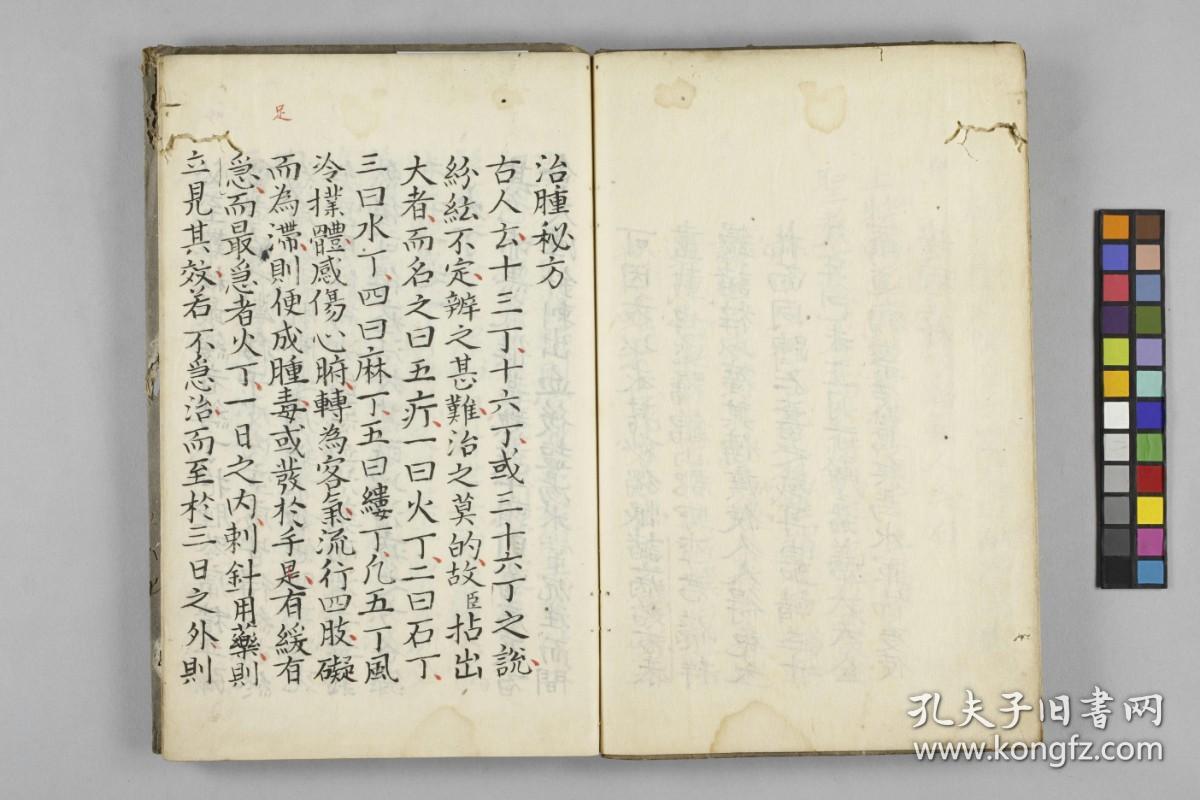 治腫秘方
古人云十三丁十六丁或三十六丁之說
紛紜不定辨之甚難治之莫的故臣拈出
大者而名之曰五疔一曰火丁二曰石丁
三曰水丁四曰麻丁五曰縷丁凡五丁風
冷撲體感傷心腑轉為客氣流行四肢礙
而為滯則便成腫毒或發於手是有緩有
急而最急者火丁一日之内刺針用藥則
立見其效若不急治而至於三日之外則
足
孔夫子旧書网
www.kongfz.com